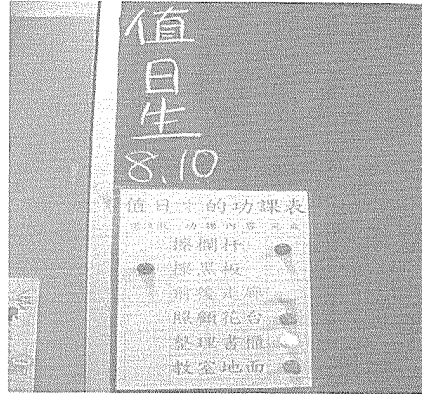 值
日
生
8、10
值日生的功課表
擦欄杆
擦黑板
前後走廊
照顧花台
整理書櫃
教室地面